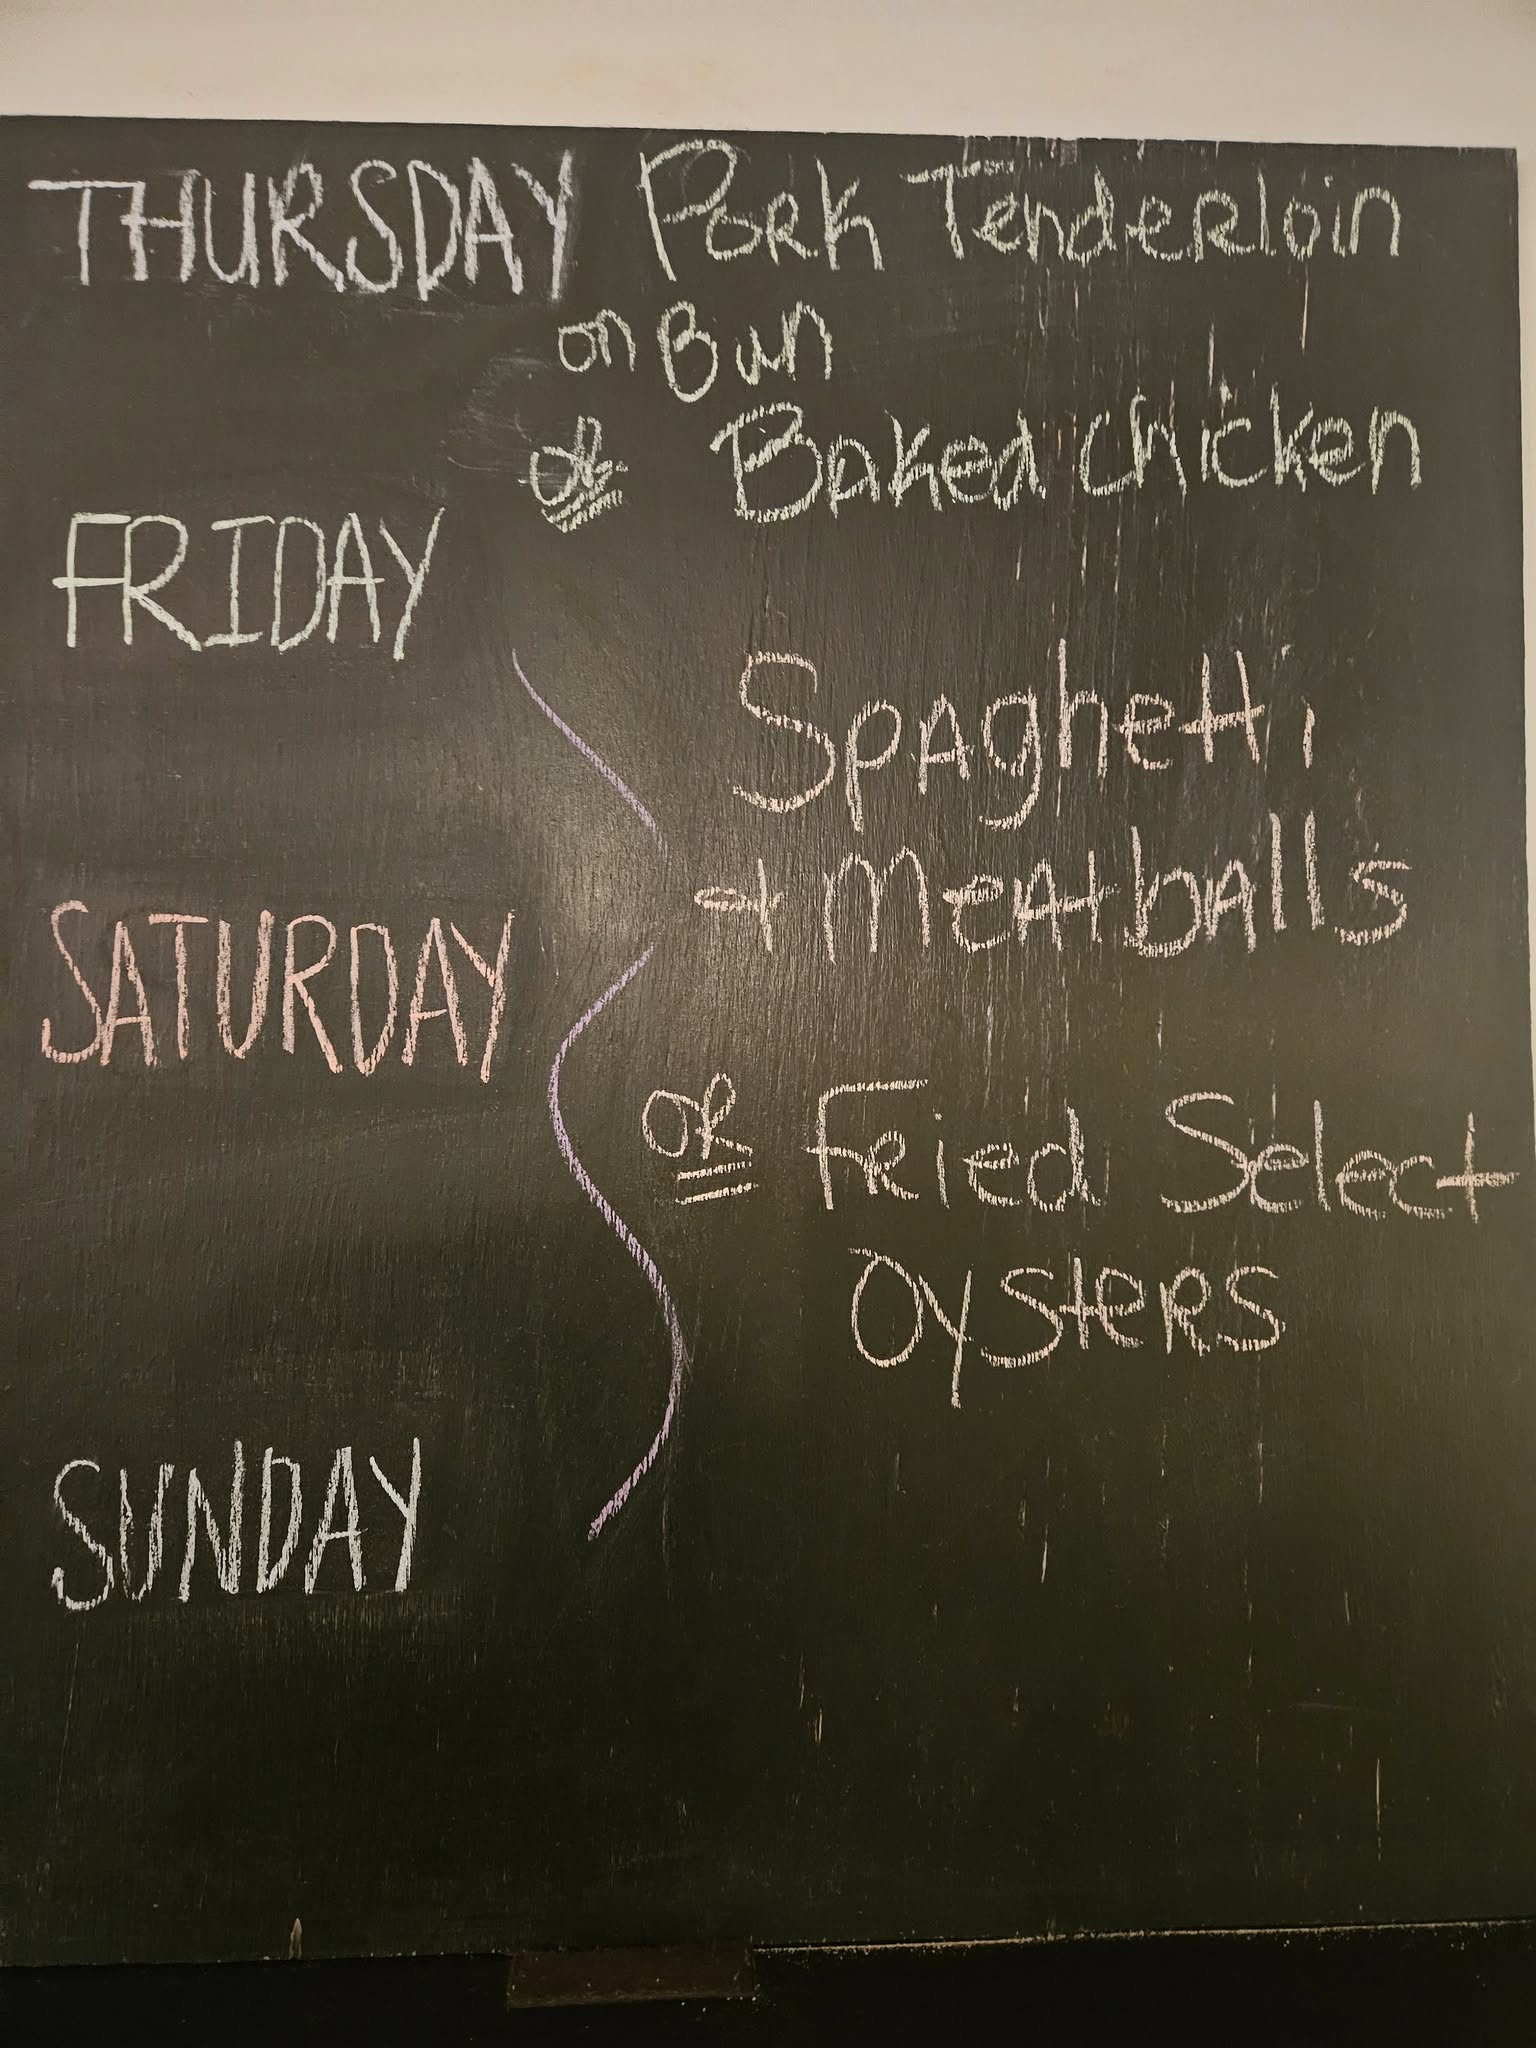 THURSDAY Pork Tenderloin
on Bun
or Baked chicken
FRIDAY
Spaghetti
+ Meatballs
SATURDAY
or Fried Select
Oysters
SUNDAY